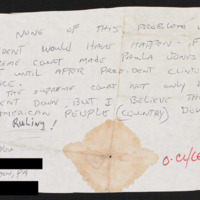 NONE OF THIS PROBLEMS W
DENT WOULD HAVE HAPPEN - F
EME COURT MADE PAULA JONES
T UNTIL AFTER PRESIDENT CLINTON
FICE.
E SUPREME COURT NOT ONLY
ENT DOWN, BUT I BELIEVE TH
AMERICAN PEOPLE (COUNTRY) DOW
Ruling!
ON, PA